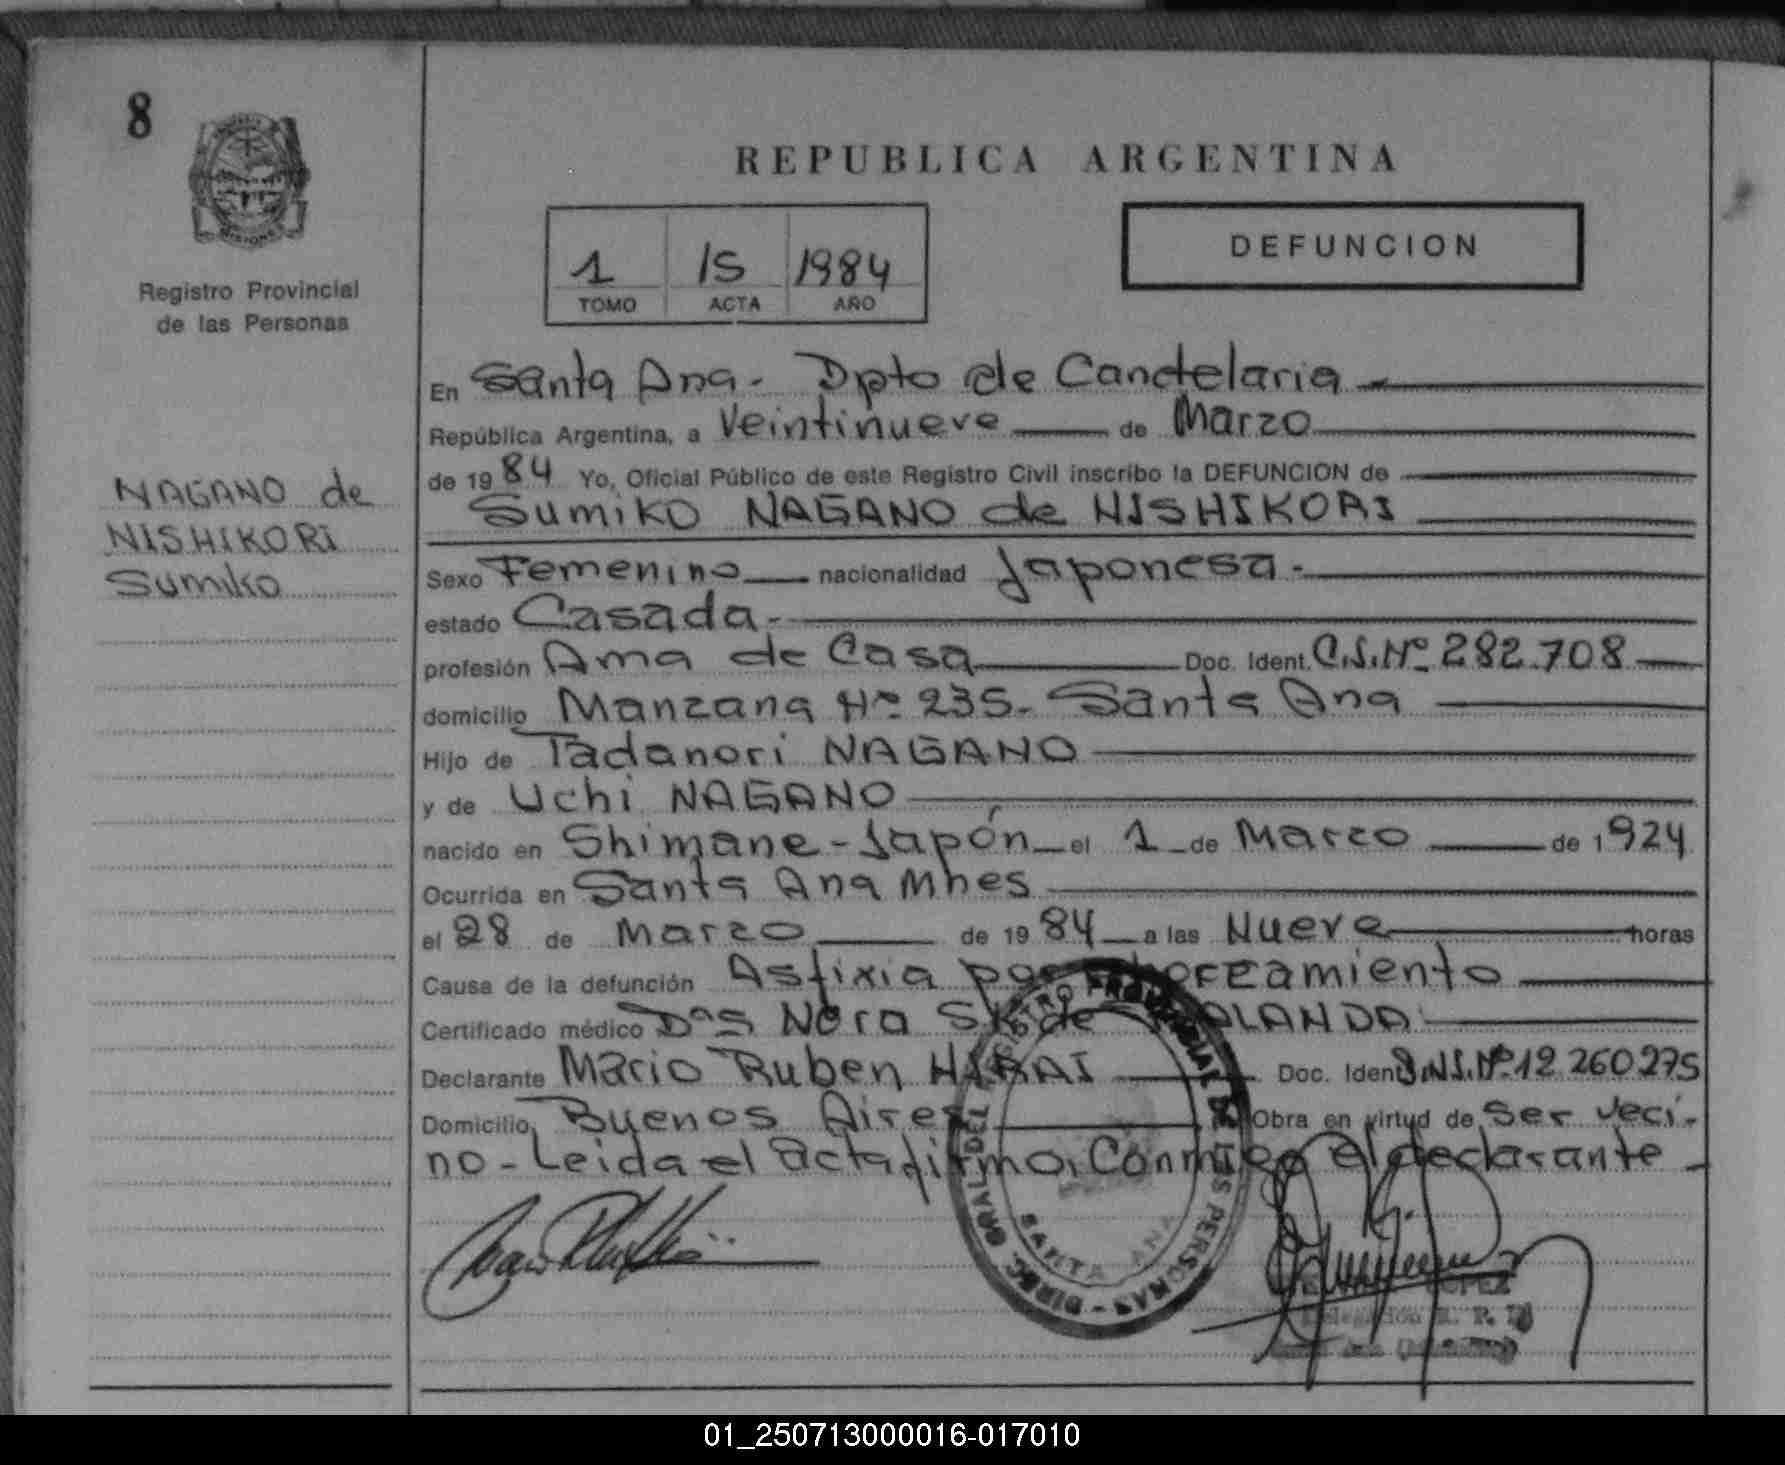 8
REPUBLICA ARGENTINA
1 15 1984
TOMO ACTA AÑO
DEFUNCION
Registro Provincial
de las Personas
NAGANO de
NISHIKORI
Sumiko
En Santa Ana - Dpto de Candelaria
República Argentina, a Veintinueve de Marzo
de 1984 Yo, Oficial Público de este Registro Civil inscribo la DEFUNCION de
Sumiko NAGANO de NISHIKORI
Sexo Femenino nacionalidad Japonesa.-
estado Casada-
profesión Ama de Casa Doc. Ident. C.I.Nº 282.708
domicilio Manzana Nº 235- Santa Ana
Hijo de Tadanori NAGANO
y de Uchi NAGANO
nacido en Shimane-Japón el 1 de Marzo de 1924
Ocurrida en Santa Ana Mnes
el 28 de Marzo de 1984 a las Nueve horas
Causa de la defunción Asfixia por ahorcamiento
Certificado médico Nora de
Declarante Mario Ruben HIRAI Doc. Ident D.N.I.Nº 12.260.275
Domicilio Buenos Aires Obra en virtud de ser veci-
no - Leida el acta, firma, Conmigo el declarante -
REGISTRO PROVINCIAL DE LAS PERSONAS - DIREC. GRAL. DEL
SANTA ANA
LOPEZ
Delegación R. P. P.
01_250713000016-017010